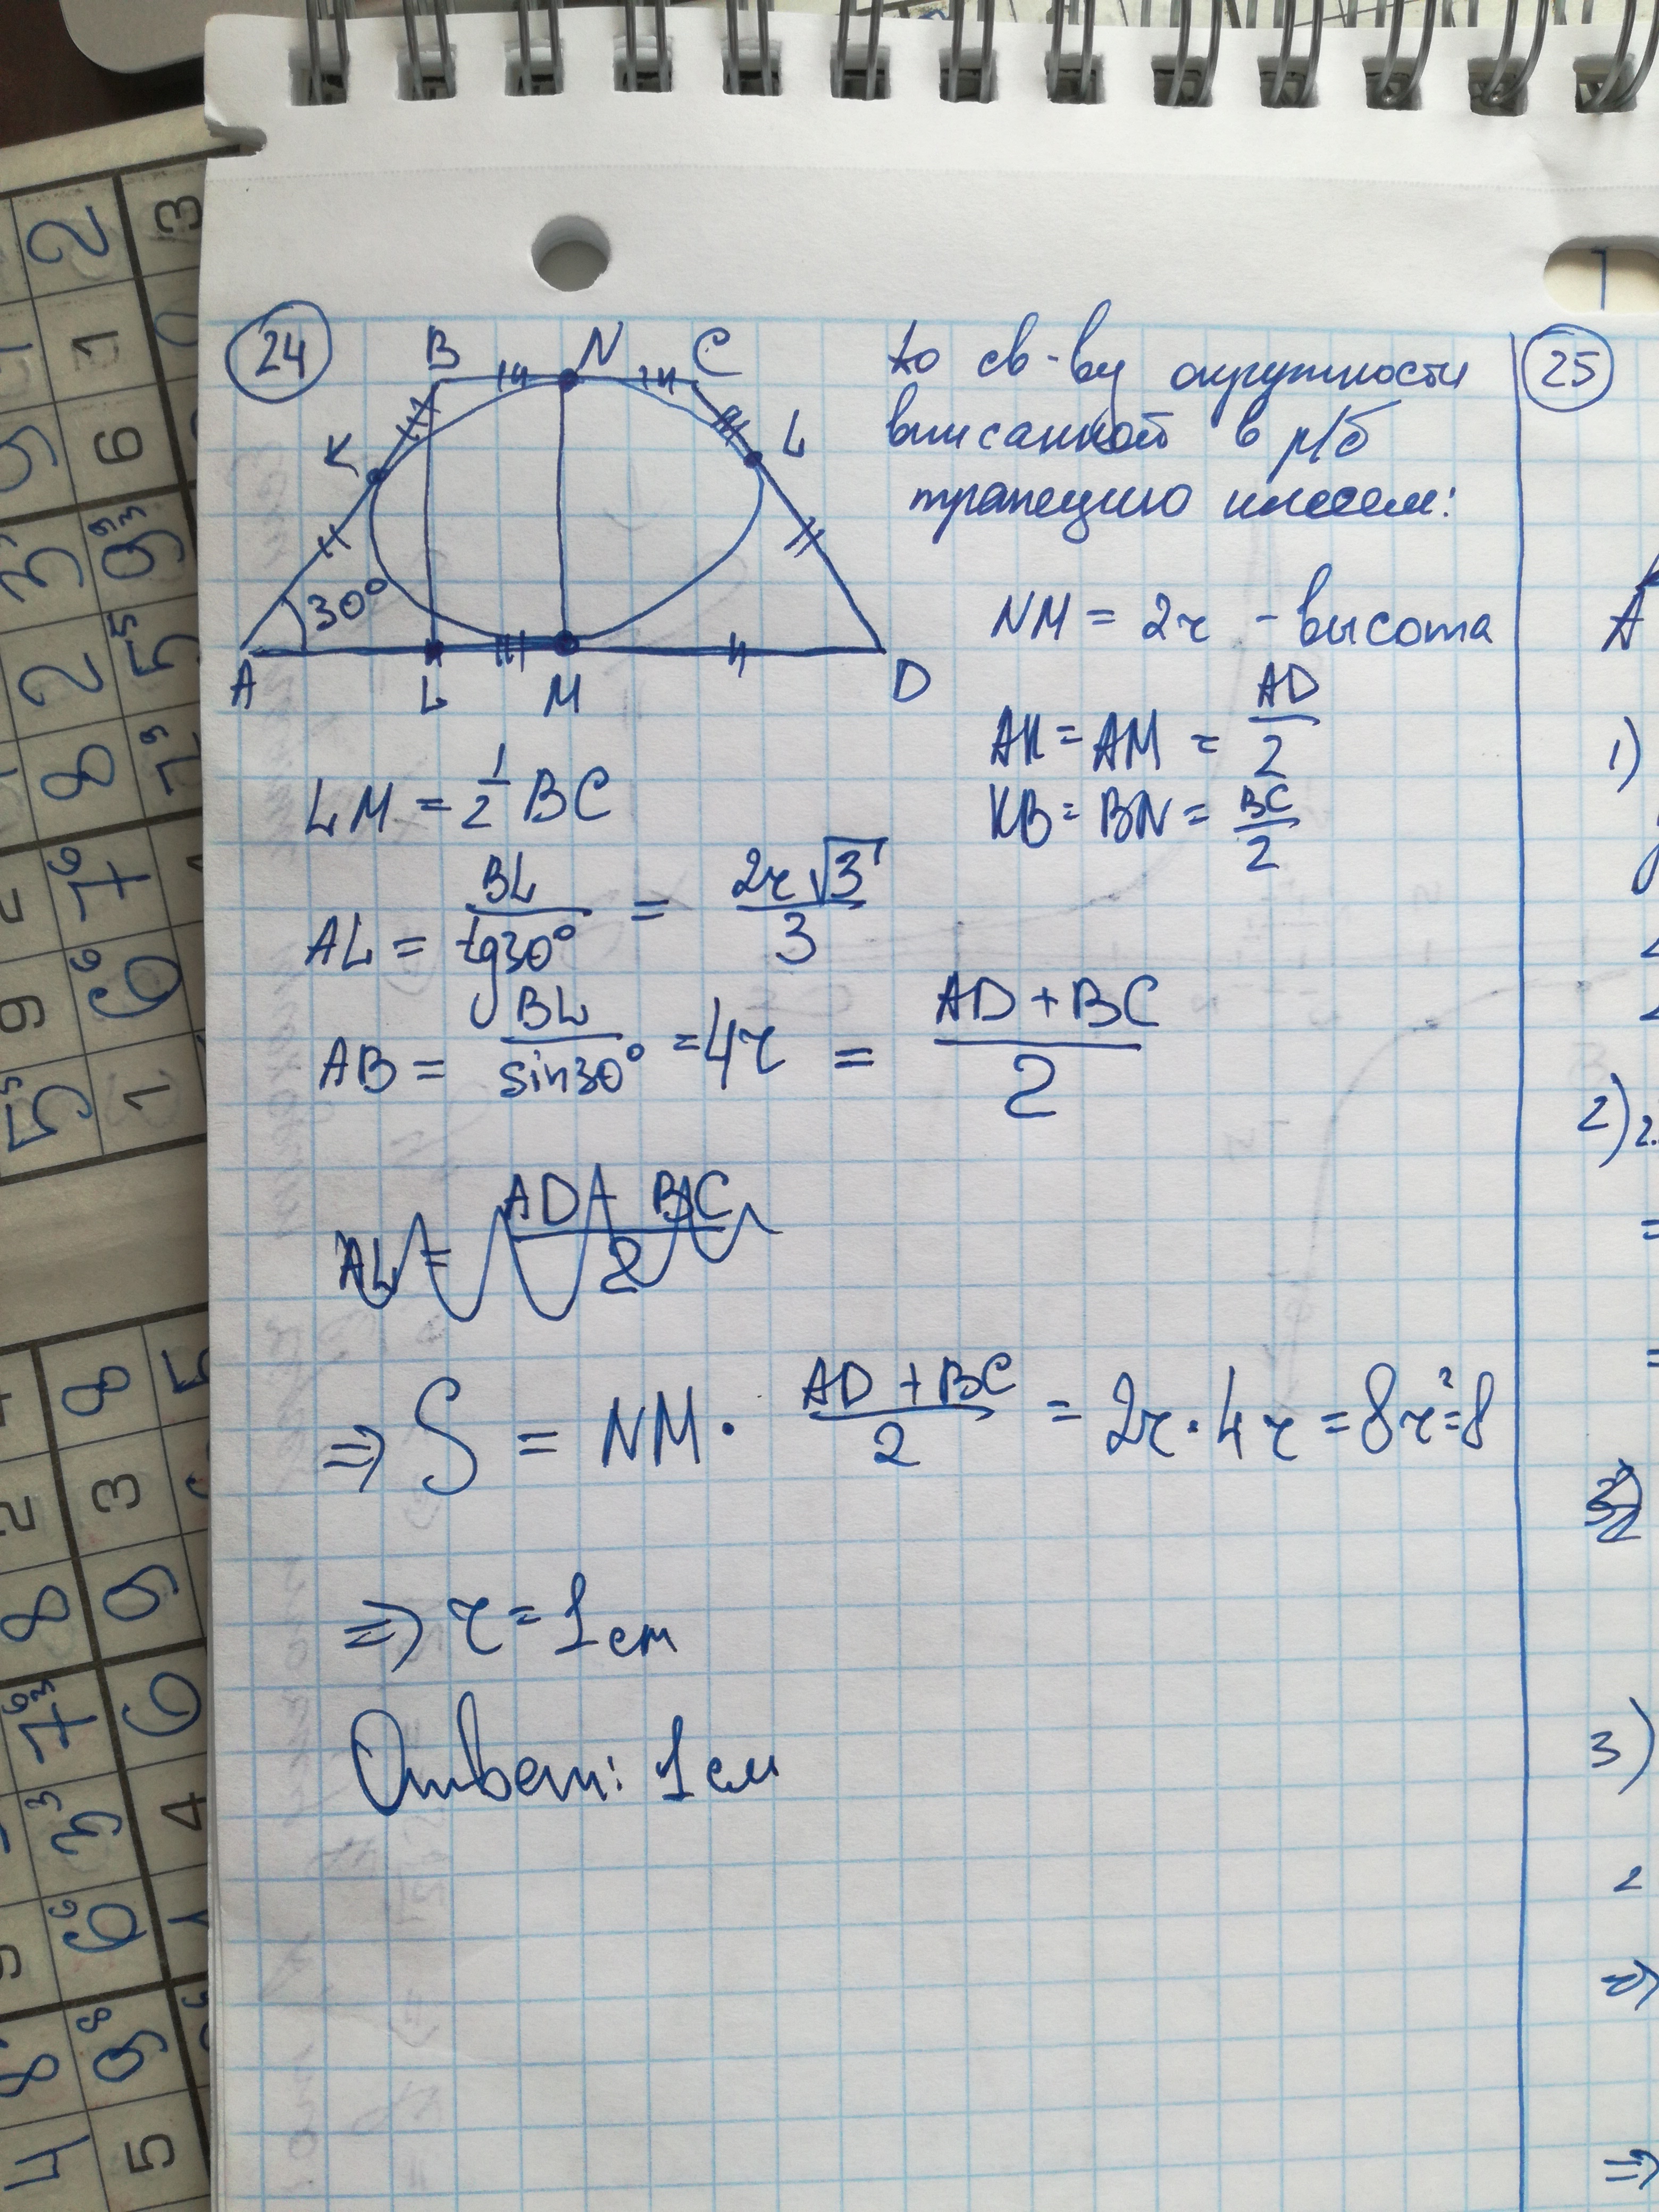 24
B N C
K L
30°
A L M D
по св-ву окружности
вписанной в р/б
трапецию имеем:
NM = 2r - высота
AK = AM = AD/2
KB = BN = BC/2
LM = 1/2 BC
AL = BL/tg30° = 2r√3/3
AB = BL/sin30° = 4r = (AD + BC)/2
⇒ S = NM · (AD + BC)/2 = 2r · 4r = 8r² = 8
⇒ r = 1 см
Ответ: 1 см
25
A
1)
2) 2.
=
=
3)
2
⇒
⇒